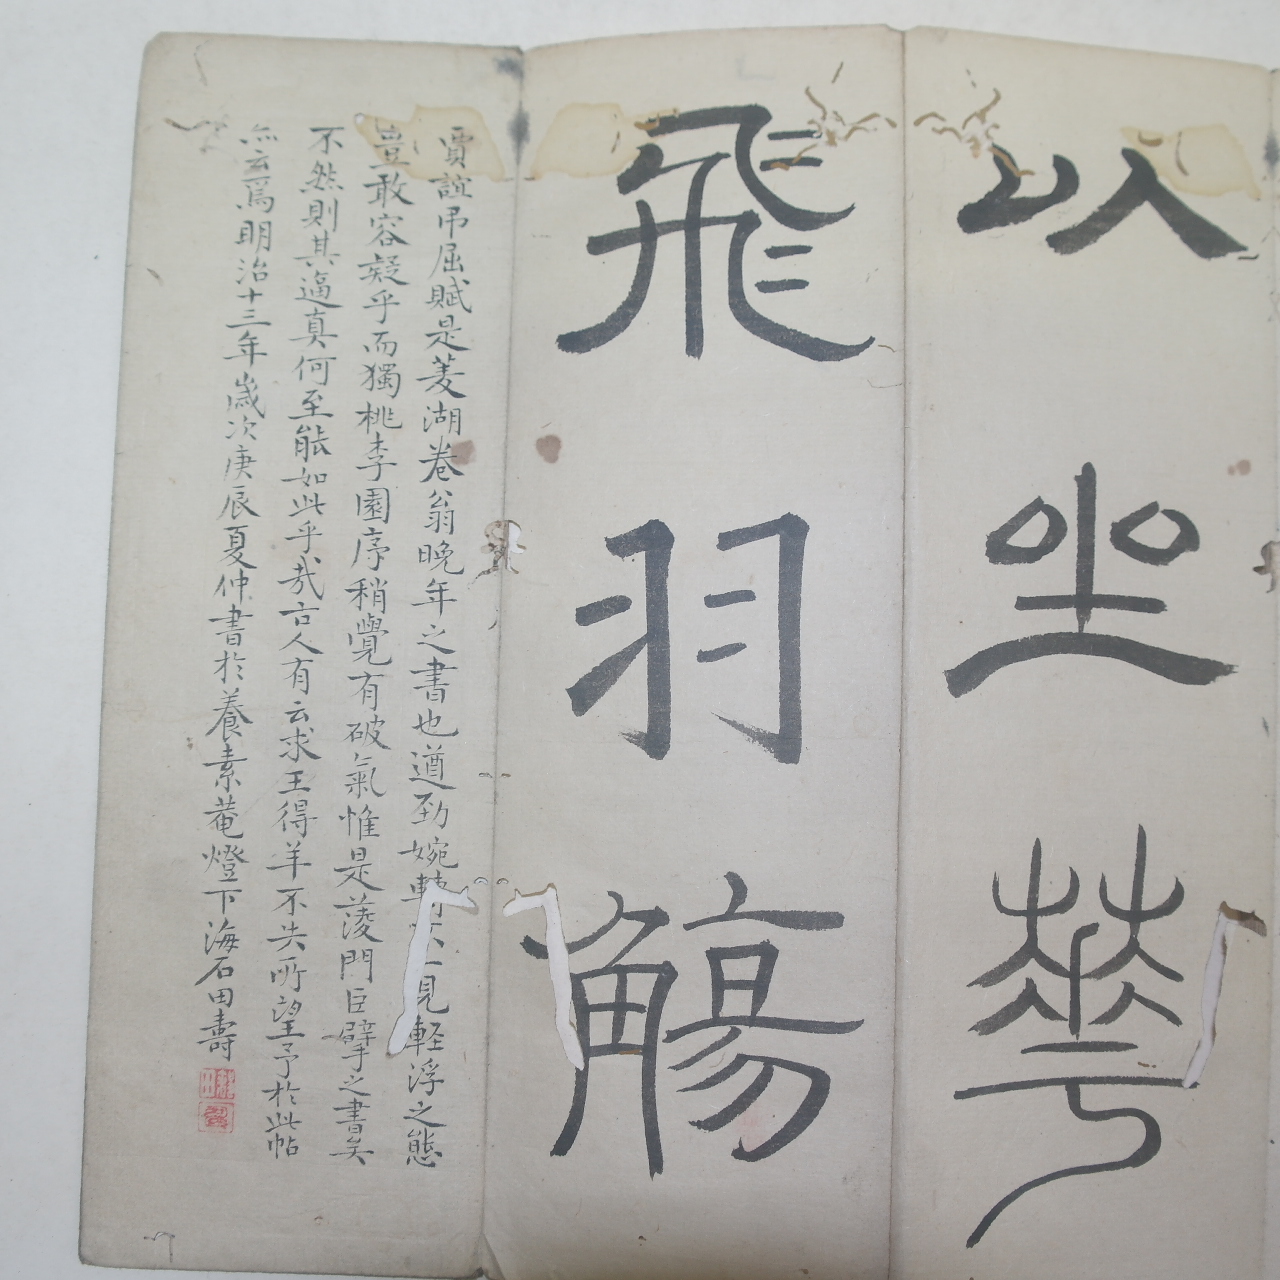 以坐華
飛羽觴
賈誼弔屈賦是菱湖卷翁晚年之書也遒勁婉轉不一見軽浮之態
豈敢容疑乎而獨桃李園序稍覺有破氣惟是菱門巨擘之書矣
不然則其逼真何至能如此乎哉古人有云求王得羊不失所望予於此帖
亦云爲明治十三年歲次庚辰夏仲書於養素菴燈下海石田壽